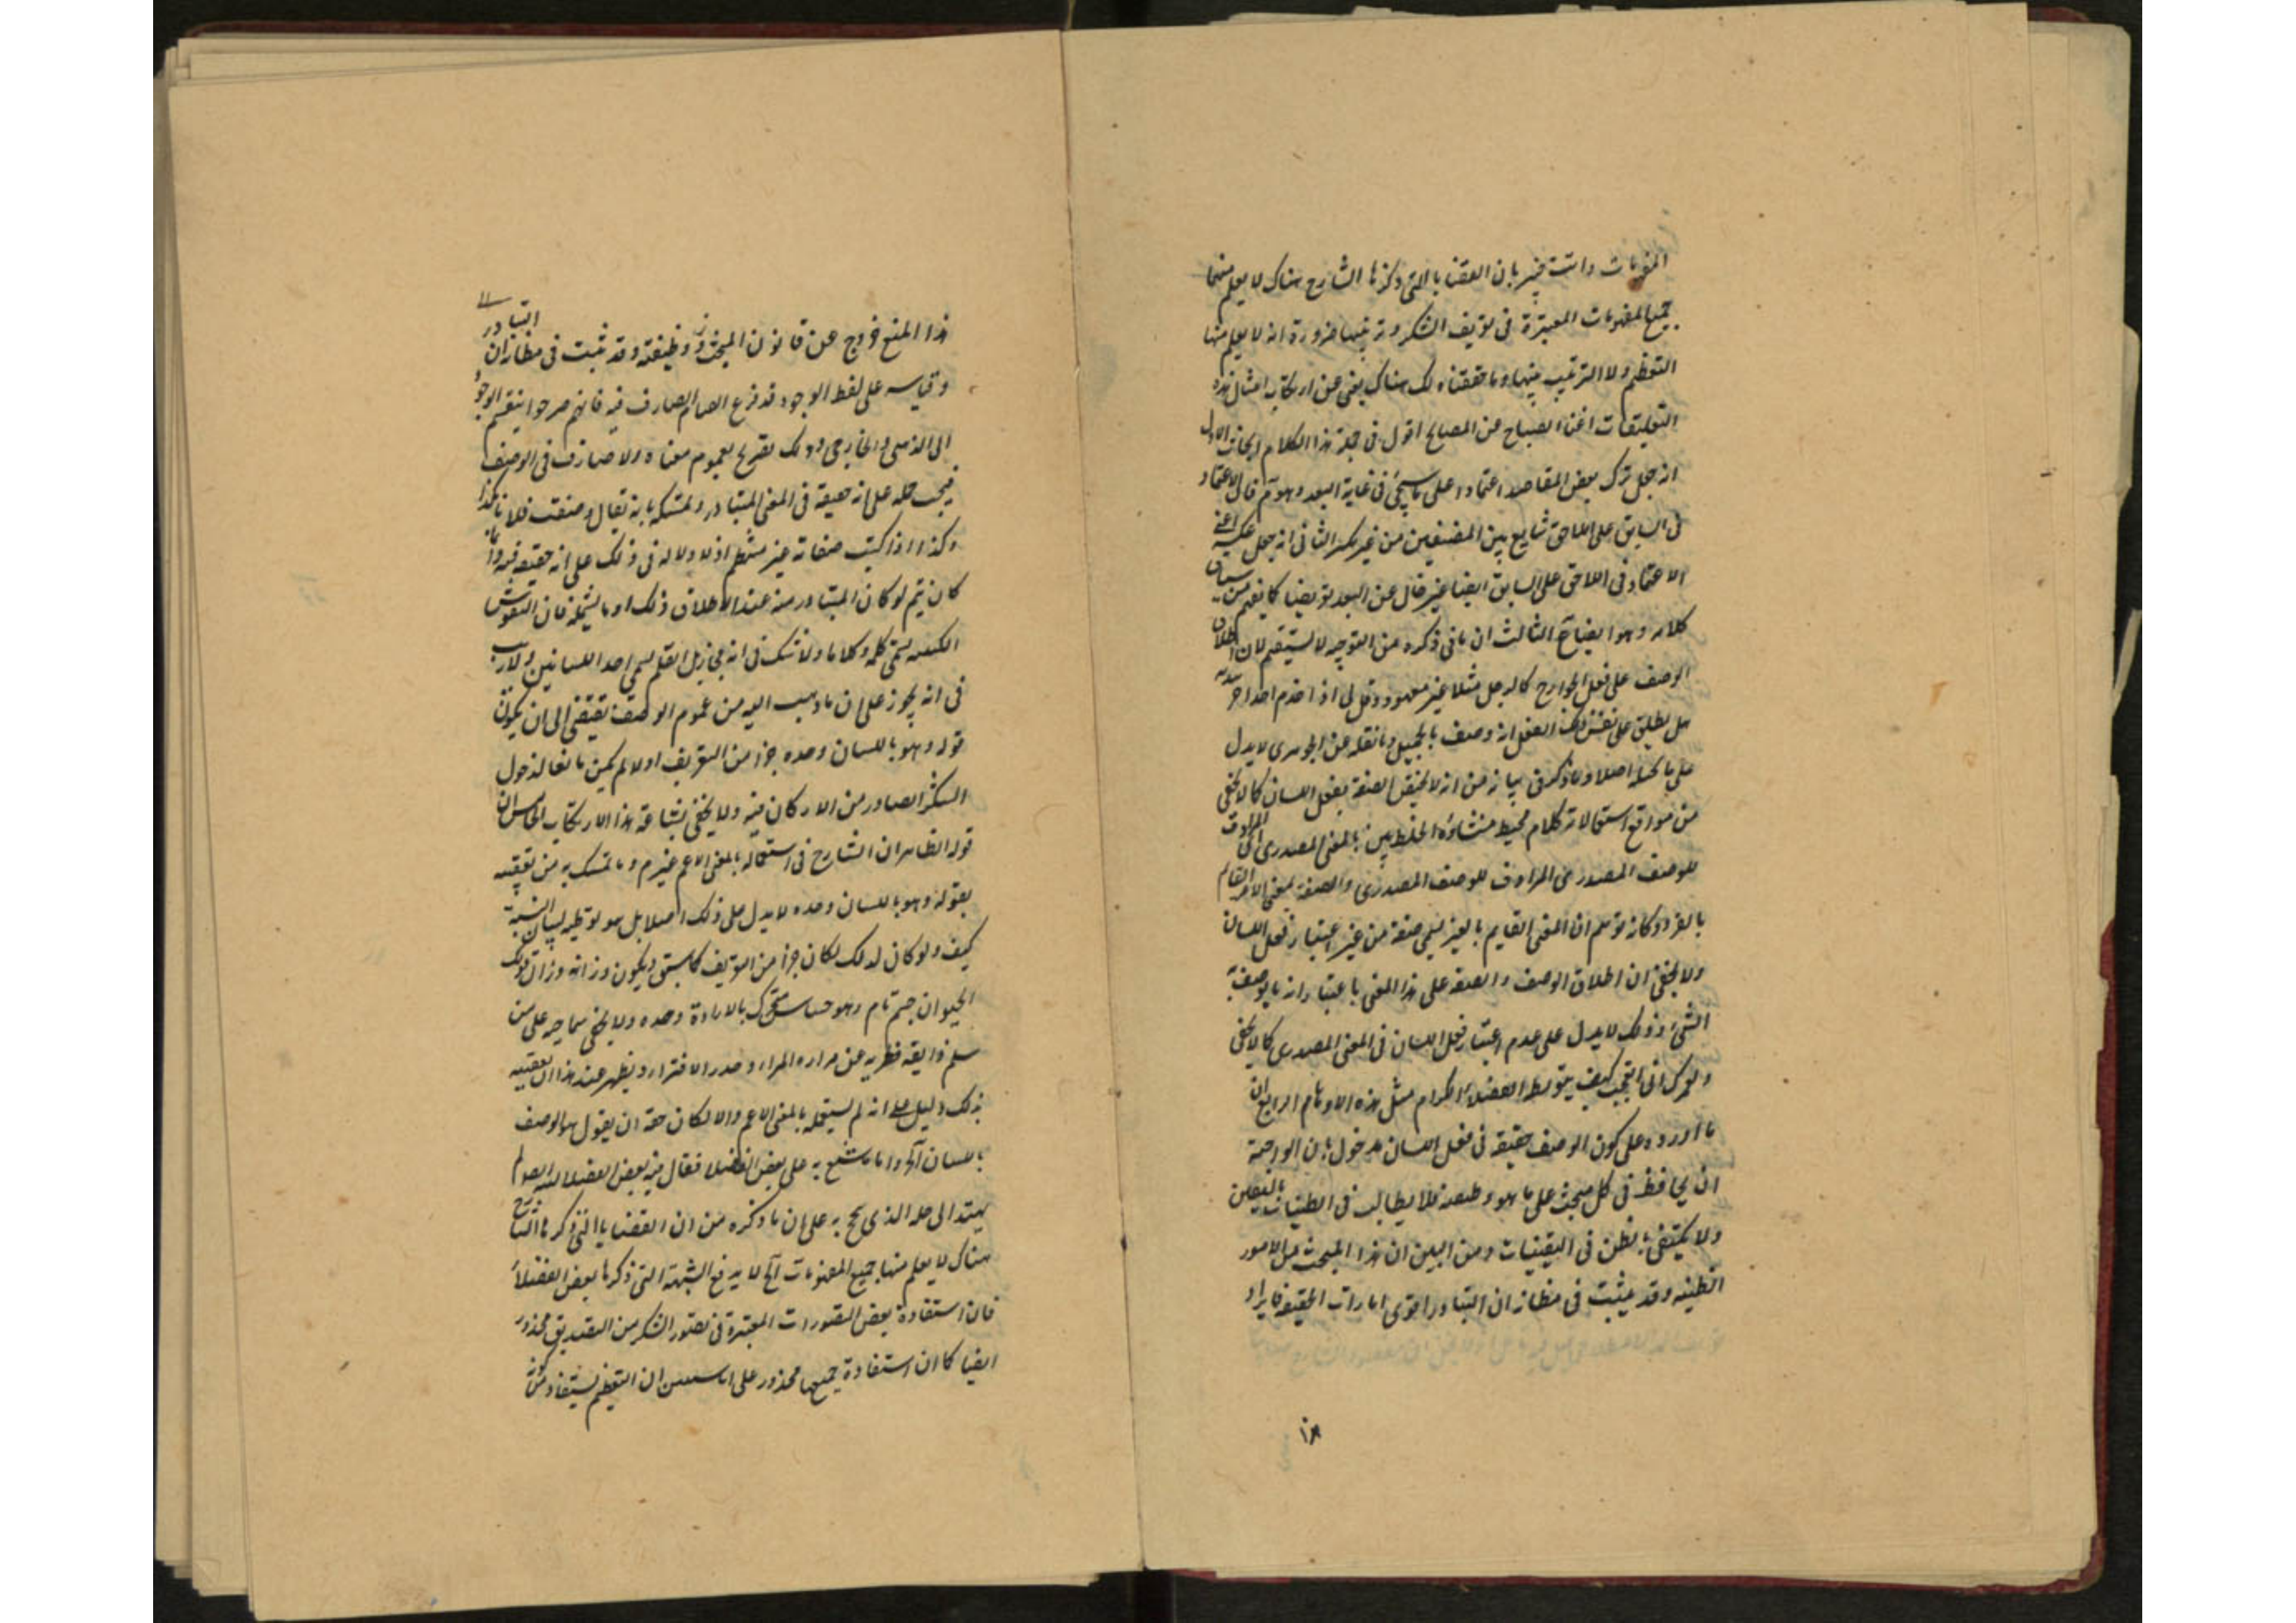 المفهومات وانت خبير بان القضايا التى ذكرها الشارح هناك لا يعلم منها
جميع المفهومات المعتبرة فى تعريف الشكر وترتيبها ضرورة انه لا يعلم منها
التعظيم ولا الترتيب بينها وما حققناه لك هناك يغنى عن ارتكاب امثال هذه
التعليقات اغناء الصباح عن المصباح اقول فى جملة هذا الكلام ابحاث الاول
انه جعل ترك بعض المقاصد اعتمادا على ما سيجئ فى غاية البعد وهو م فان الاعتماد
فى السابق على اللاحق شايع بين المصنفين من غير نكير الثانى انه جعل عكسه اعنى
الاعتماد فى اللاحق على السابق ايضا غير خال عن البعد تعريضا كما يفهم من سياق
كلامه وهو ايضا م الثالث ان ما فى ذكره من التوجيه لا يستقيم لان اطلاق
الوصف على فعل الجوارح كالرجل مثلا غير معهود وقل لى اذا خدم احد اخر
هل يطلق على نفس ذلك الفعل انه وصف بالجميل وما نقله عن الجوهرى لا يدل
على ما تخيله اصلا وما ذكره فى بيانه من انه لا يختص الصفة بفعل اللسان كما لا يخفى
من مواقع استعمالاته كلام مخبط منشاؤه الخلط بين المعنى المصدرى المرادف
للوصف المصدرى المرادف للوصف المصدرى والصفة بمعنى الامر القائم
بالغير وكانه توهم ان المعنى القايم بالغير يسمى صفة من غير اعتبار فعل اللسان
ولا يخفى ان اطلاق الوصف والصفة على هذا المعنى باعتبار انه ما يوصف به
الشئ وذلك لا يدل على عدم اعتبار فعل اللسان فى المعنى المصدرى كما لا يخفى
ولعمرك انى اتعجب كيف يتورط الفضلاء الكرام مثل هذه الاوهام الرابع ان
ما اورده على كون الوصف حقيقة فى فعل اللسان مدخول بان الواجب
ان يحافظ فى كل مبحث على ما هو وظيفته فلا يطالب فى الظنيات باليقين
ولا يكتفى بالظن فى اليقينيات ومن البين ان هذا المبحث من الامور
الظنيه وقد يثبت فى مظانه ان التبادر اقوى امارات الحقيقه فايراد
هذا المنع خروج عن قانون المبحث ووظيفته وقد ثبت فى مظانه ان التبادر
وقياسه على لفظ الوجود قد فزع الصارف فيه فانهم صرحوا بتقسيم الوجود
الى الذهنى والخارجى وذلك تصريح بعموم معناه ولا صارف فى الوصف
فيجب حمله على انه حقيقة فى المعنى المتبادر وتمسكه بانه يقال وصفت فلانا بكذا
وكذا اذا كتب صفاته غير منتظم اذ لا دلالة فى ذلك على انه حقيقه فيه وانما
كان يتم لو كان المتبادر منه عند الاطلاق ذلك او ما يشمله فان النقوش
الكتبيه يسمى كلمة وكلاما ولا شك فى انه مجاز بل القلم يسمى احد اللسانين ولا ريب
فى انه تجوز على ان ما ذهب اليه من عموم الوصف يقتضى الى ان يكون
قوله وهو باللسان وحده جزءا من التعريف اولا لم يكن مانعا لدخول
الشكر الصادر من الاركان فيه ولا يخفى بشاعة هذا الارتكاب الخامس ان
قوله الظاهر ان الشارح فى استعماله بالمعنى الاعم غير م وما تمسك به من تعقيبه
بقوله وهو باللسان وحده لا يدل على ذلك اصلا بل هو توطية لبيان النسبة
كيف ولو كان لذلك لكان جزءا من التعريف كما سبق ويكون وزانه وزان قولك
الحيوان جسم نام وهو حساس متحرك بالارادة وحده ولا يخفى سماجته على من
سلم ذايقة فطريه عن مرارة المراء وصدر الافتراء ويظهر عند هذا ان تعقيبه
بذلك دليل على انه لم يستعمله بالمعنى الاعم والا لكان حقه ان يقول هو الوصف
باللسان آه واما ما شنع به على بعض الفضلا فقال فيه بعض الفضلا لم
يهتد الى حله الذى بجج به على ان ما ذكره من ان القضايا التى ذكرها الشارح
هناك لا يعلم منها جميع المفهومات آه لا يدفع الشبهة التى ذكرها بعض الفضلاء
فان استفادة بعض التصورات المعتبرة فى تصور الشكر من التصديق محذور
ايضا كما ان استفادة جميعها محذور على ان التعظيم يستفاد من